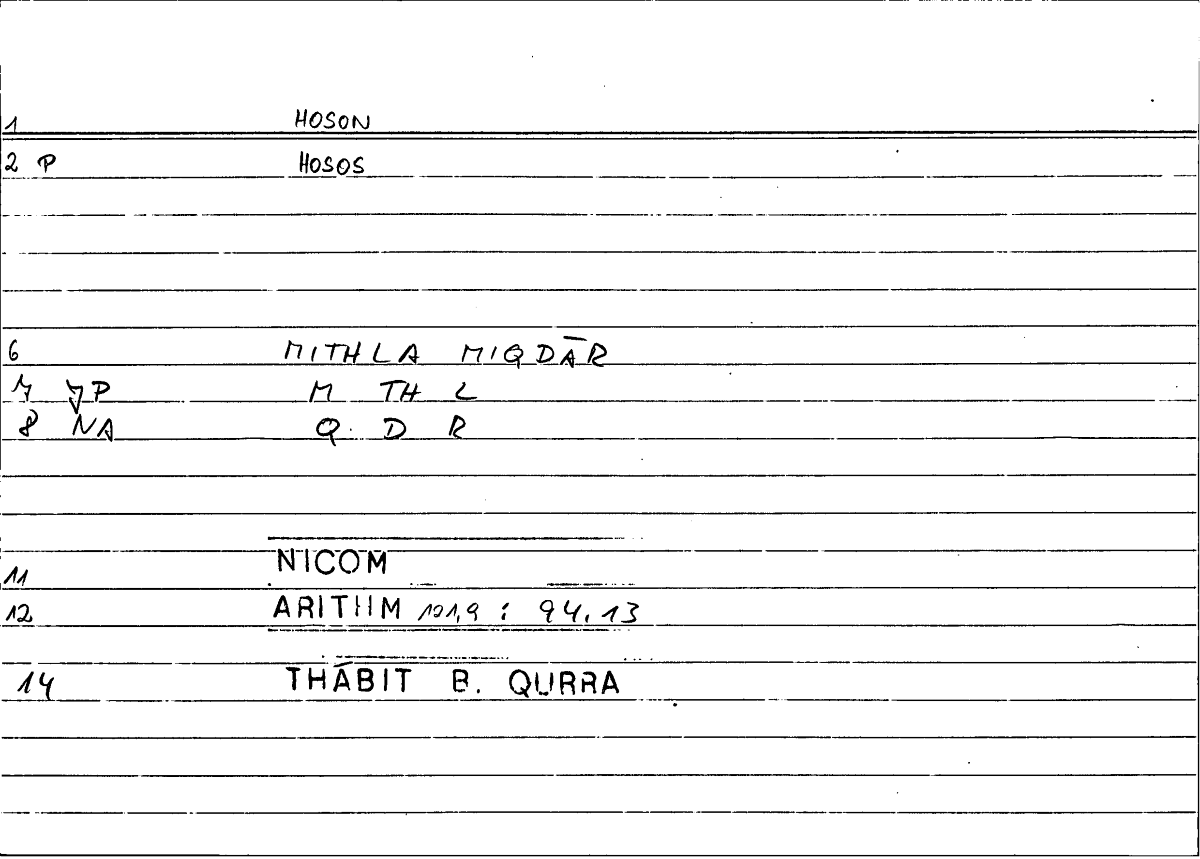 1 HOSON
2 P HOSOS
6 MITHLA MIQDĀR
7 JP M TH L
8 NA Q D R
11 NICOM
12 ARITHM 121,9 : 94.13
14 THĀBIT B. QURRA